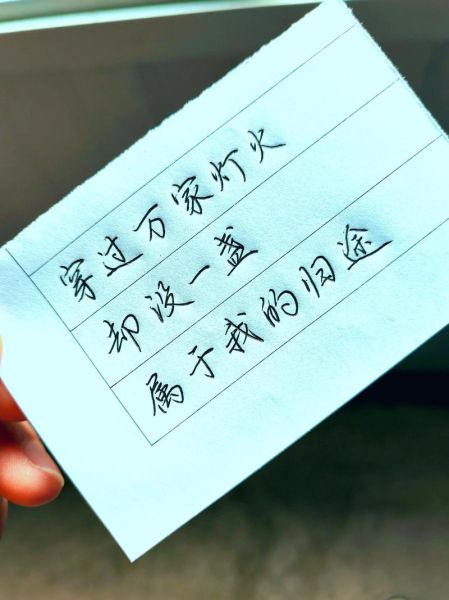 穿过万家灯火
却没一盏
属于我的归途